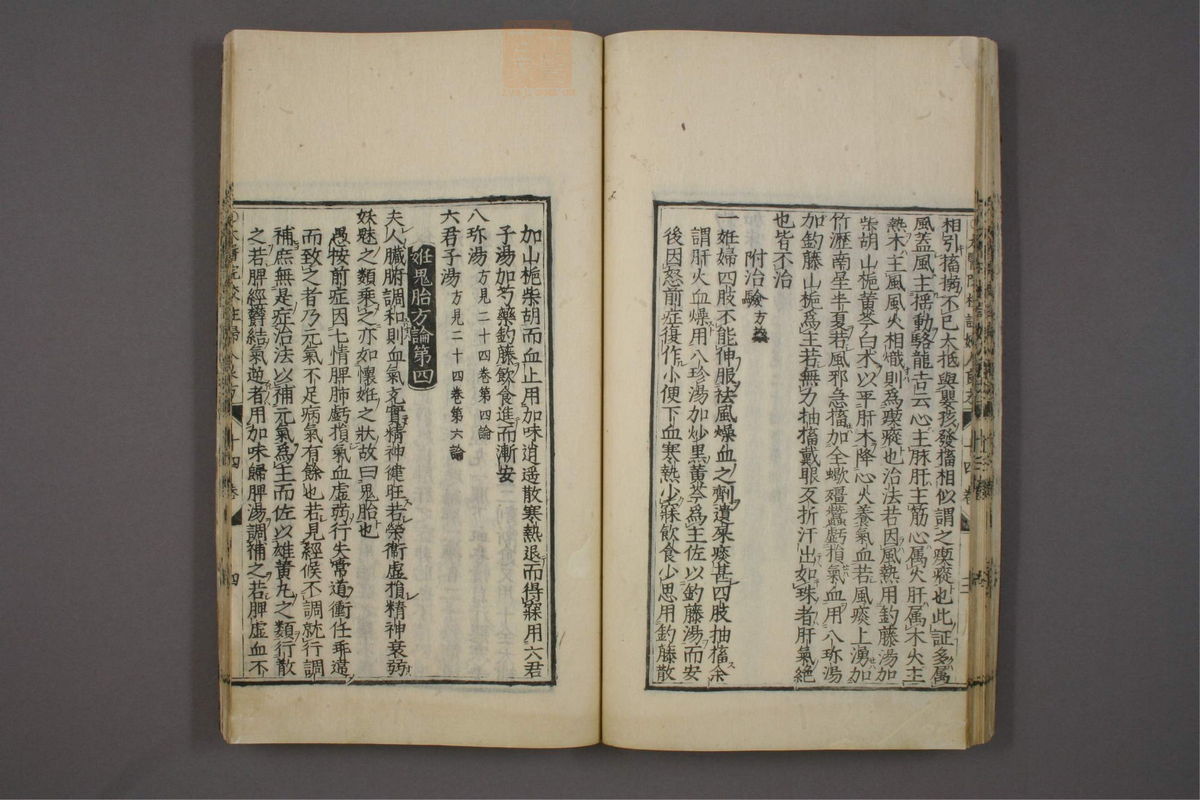 相引搐搦不已大抵與嬰孩發搐相似謂之瘈瘲也此証多属
風蓋風主揺動駱龍吉云心主脉肝主筋心属火肝属木火主
熱木主風風火相熾則為瘈瘲也治法若因風熱用鈎藤湯加
柴胡山梔黄芩白朮以平肝木降心火養氣血若風痰上湧加
竹瀝南星半夏若風邪急搐加全蝎殭蠶虧損氣血用八珎湯
加鈎藤山梔爲主若無力抽搐戴眼反折汗出如珠者肝氣絶
也皆不治
附治驗方藥
一姙婦四肢不能伸服祛風燥血之劑遺屎痰甚四肢抽搐余
謂肝火血燥用八珍湯加炒黒黄芩爲主佐以鈎藤湯而安
後因怒前症復作小便下血寒熱少寐飲食少思用鈎藤散
加山梔柴胡而血止用加味逍遥散寒熱退而得寐用六君
子湯加芍藥鈎藤飲食進而漸安
八珎湯方見二十四卷第四論
六君子湯方見二十四卷第六論
姙鬼胎方論第四
夫人臓腑調和則血氣充實精神健旺若榮衞虚損精神衰弱
妖魅之類乘之亦如懷姙之狀故曰鬼胎也
愚按前症因七情脾肺虧損氣血虚弱行失常道衝任乖違
而致之者乃元氣不足病氣有餘也若見經候不調就行調
補庶無是症治法以補元氣爲主而佐以雄黄丸之類行散
之若脾經欝結氣逆者用加味歸脾湯調補之若脾虚血不
十四卷
四